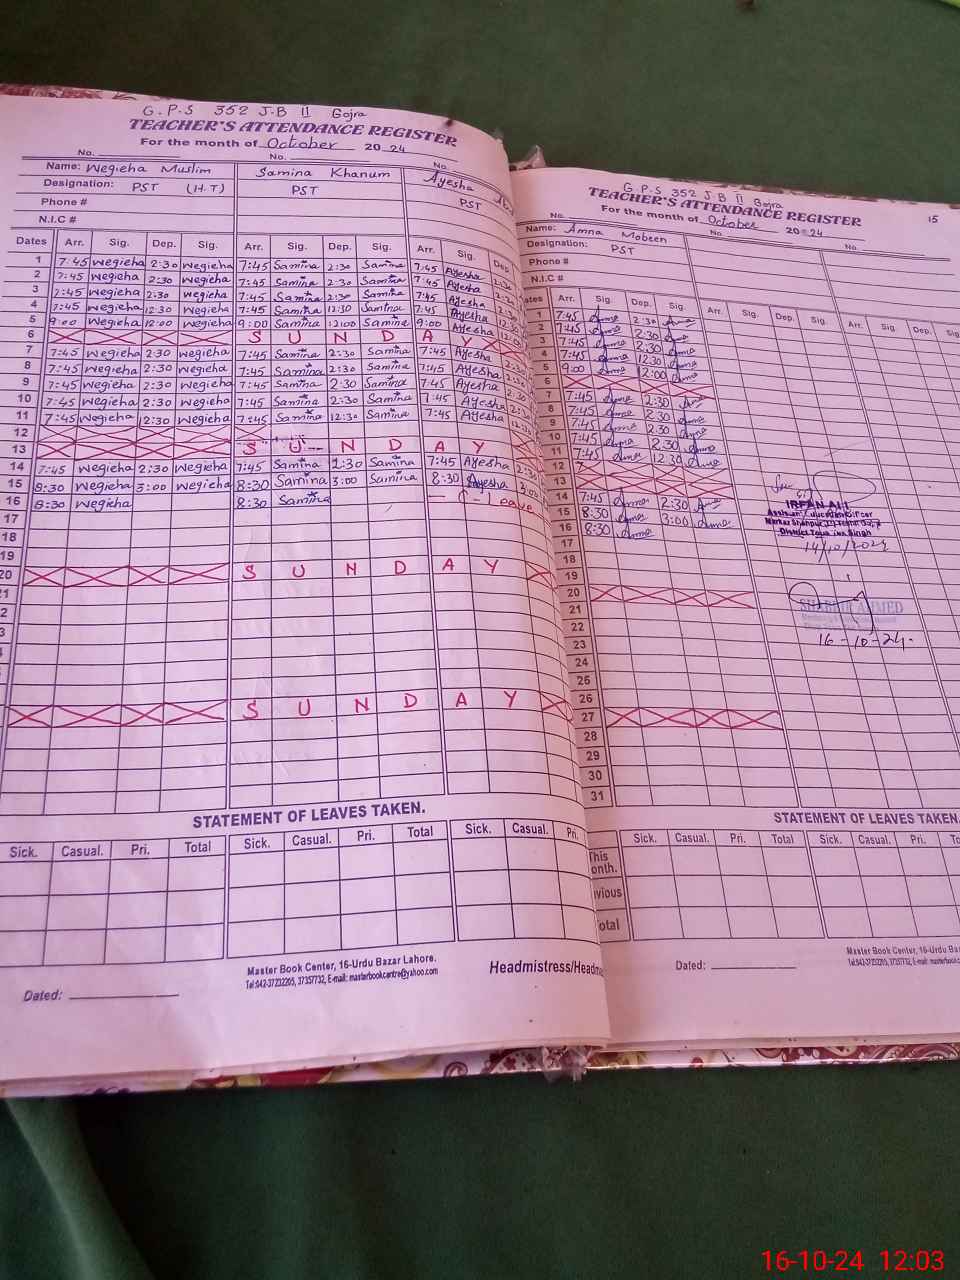 G.P.S 352 J.B II Gojra
TEACHER'S ATTENDANCE REGISTER
For the month of October 2024
No. No. No.
Name: Wegieha Muslim Samina Khanum Ayesha
Designation: PST (H.T) PST PST
Phone #
N.I.C #
Dates Arr. Sig. Dep. Sig. Arr. Sig. Dep. Sig. Arr. Sig. Dep.
1 7:45 Wegieha 2:30 Wegieha 7:45 Samina 2:30 Samina 7:45 Ayesha 2:30
2 7:45 Wegieha 2:30 Wegieha 7:45 Samina 2:30 Samina 7:45 Ayesha 2:30
3 7:45 Wegieha 2:30 Wegieha 7:45 Samina 2:30 Samina 7:45 Ayesha 2:30
4 7:45 Wegieha 12:30 Wegieha 7:45 Samina 12:30 Samina 7:45 Ayesha 12:30
5 9:00 Wegieha 12:00 Wegieha 9:00 Samina 12:00 Samina 9:00 Ayesha 12:00
6 S U N D A Y
7 7:45 Wegieha 2:30 Wegieha 7:45 Samina 2:30 Samina 7:45 Ayesha
8 7:45 Wegieha 2:30 Wegieha 7:45 Samina 2:30 Samina 7:45 Ayesha 2:30
9 7:45 Wegieha 2:30 Wegieha 7:45 Samina 2:30 Samina 7:45 Ayesha 2:30
10 7:45 Wegieha 2:30 Wegieha 7:45 Samina 2:30 Samina 7:45 Ayesha 2:30
11 7:45 Wegieha 12:30 Wegieha 7:45 Samina 12:30 Samina 7:45 Ayesha
12
13 S U N D A Y
14 7:45 Wegieha 2:30 Wegieha 7:45 Samina 2:30 Samina 7:45 Ayesha 2:30
15 8:30 Wegieha 3:00 Wegieha 8:30 Samina 3:00 Samina 8:30 Ayesha 3:00
16 8:30 Wegieha 8:30 Samina — C - Leave
17
18
19
20 S U N D A Y
21
2
3
S U N D A Y
STATEMENT OF LEAVES TAKEN.
Sick. Casual. Pri. Total Sick. Casual. Pri. Total Sick. Casual. Pri.
Master Book Center, 16-Urdu Bazar Lahore.
Tel:042-37232205, 37357732, E-mail: masterbookcentre@yahoo.com
Dated: Headmistress/Headm
G.P.S 352 J.B II Gojra
TEACHER'S ATTENDANCE REGISTER
15
For the month of October 2024
No. No. No.
Name: Amna Mobeen
Designation: PST
Phone #
N.I.C #
ates Arr. Sig. Dep. Sig. Arr. Sig. Dep. Sig. Arr. Sig. Dep.
1 7:45 Amna 2:30 Amna
2 7:45 Amna 2:30 Amna
3 7:45 Amna 2:30 Amna
4 7:45 Amna 12:30 Amna
5 9:00 Amna 12:00 Amna
6
7 7:45 Amna 2:30 Amna
8 7:45 Amna 2:30 Amna
9 7:45 Amna 2:30 Amna
10 7:45 Amna 2:30 Amna
11 7:45 Amna 12:30 Amna
12
13
14 7:45 Amna 2:30 Amna
15 8:30 Amna 3:00 Amna
16 8:30 Amna
17
18
19
20
21
22
23
24
25
26
27
28
29
30
31
IRFAN ALI
Assistant Education Officer
14/10/2024
SHABBIR AHMED
16-10-24.
STATEMENT OF LEAVES TAKEN.
Sick. Casual. Pri. Total Sick. Casual. Pri. To
This
onth.
vious
otal
Master Book Center, 16-Urdu Ba
Tel:042-37232205, 37357732, E-mail: masterbookc
Dated:
16-10-24 12:03